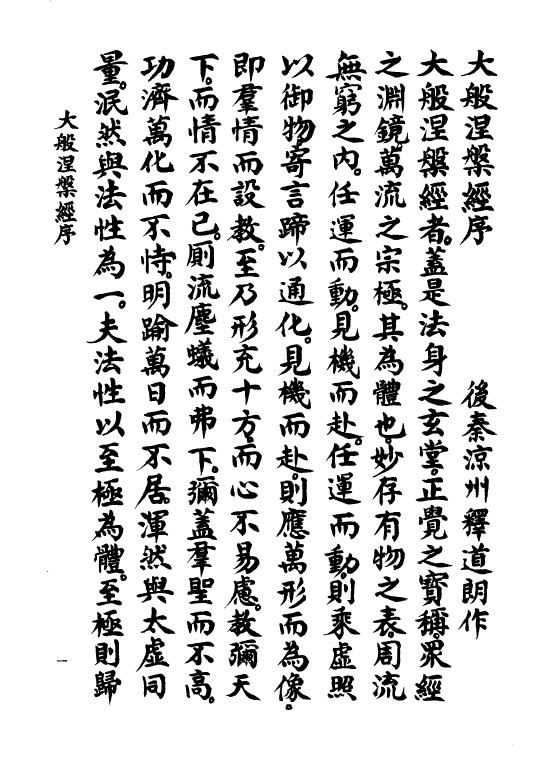 大般涅槃經序　後秦涼州釋道朗作
大般涅槃經者。蓋是法身之玄堂。正覺之寶稱。眾經
之淵鏡。萬流之宗極。其為體也。妙存有物之表。周流
無窮之內。任運而動。見機而赴。任運而動。則乘虛照
以御物。寄言蹄以通化。見機而赴。則應萬形而為像。
即羣情而設教。至乃形充十方。而心不易慮。教彌天
下。而情不在己。厠流塵蟻而弗下。彌蓋羣聖而不高。
功濟萬化而不恃。明踰萬日而不居。渾然與太虛同
量。泯然與法性為一。夫法性以至極為體。至極則歸
大般涅槃經序
一